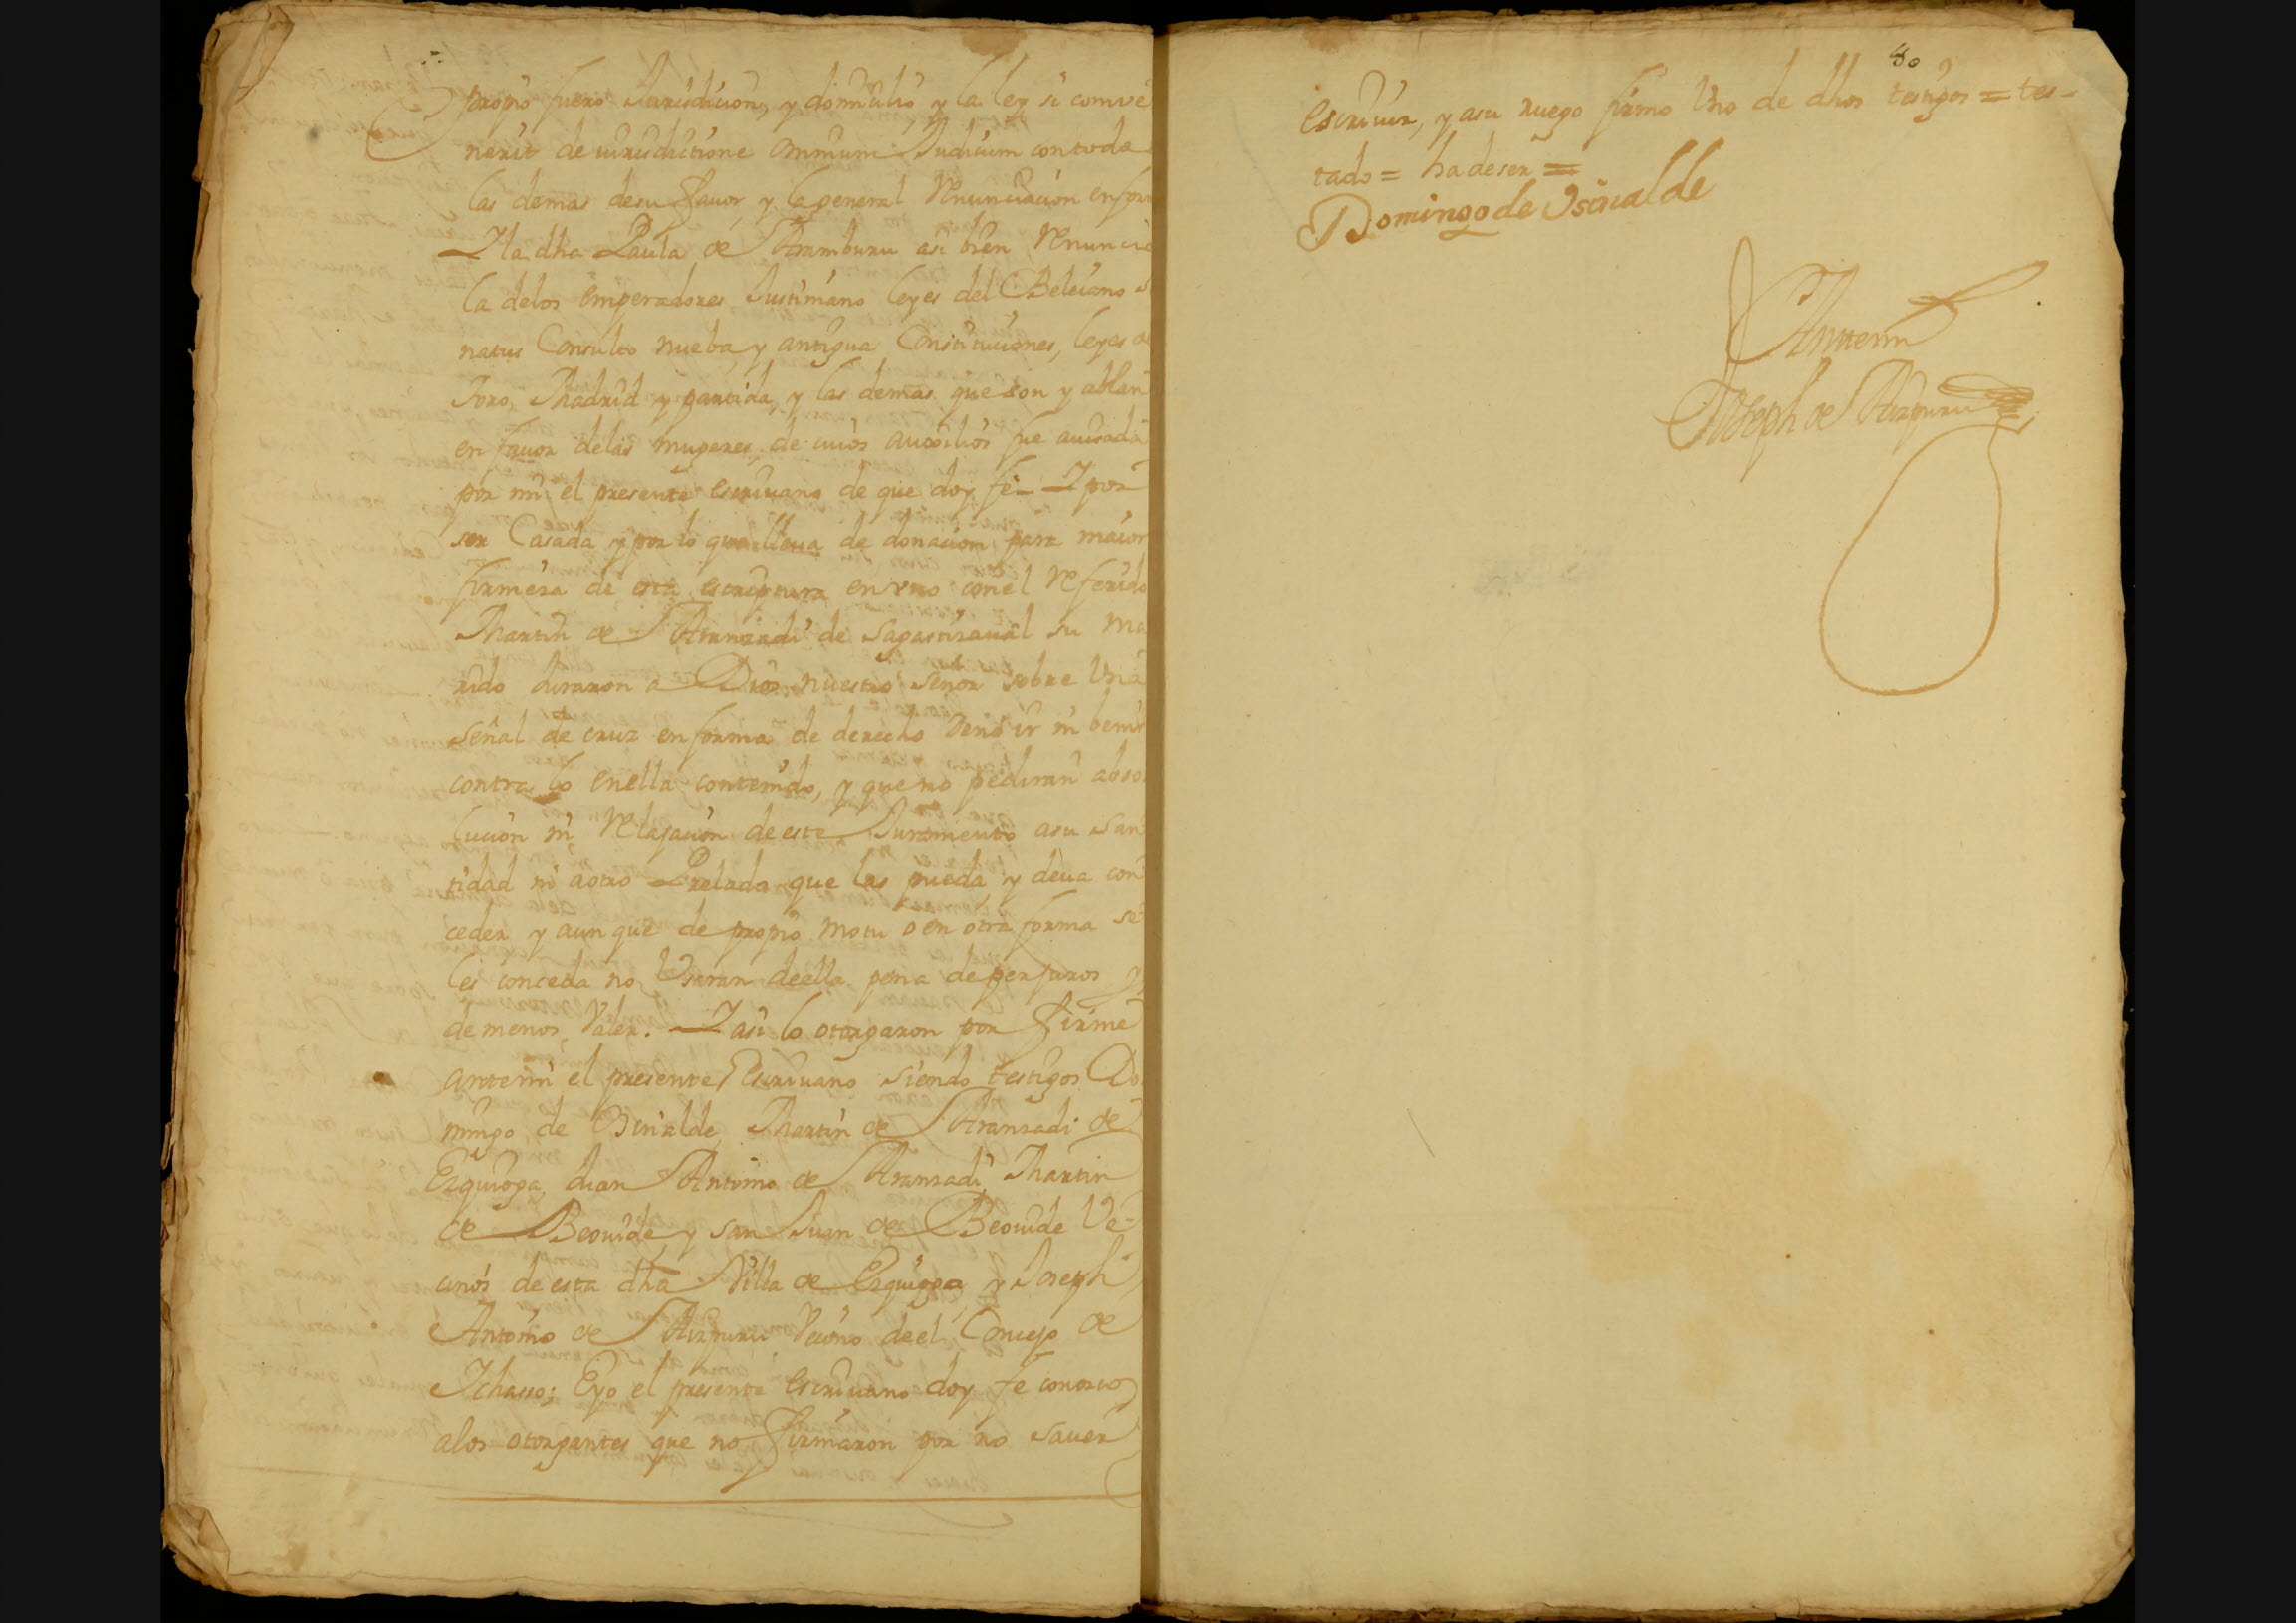 propio fuero Jurisdicion, y domicilio y la ley si conve
nerit de iurisdictione omnium Judicum con toda
las demas de su favor y la general Renunciacion en for
Y la dha Paula de Aramburu asi bien Renuncio
la delos emperadores Justiniano leyes del Beleiano s
natus Consulto nueba y antigua Constituciones, leyes de
Toro, Madrid y partida, y las demas que son y ablan
en favor delas mugeres, de cuios auxilios fue auisada
por mi el presente escriuano de que doy fe - Y por
ser Casada y por lo que lleua de donacion para maior
firmeza de esta escriptura en vno con el Referido
Martin de Aranzadi de Sagastizaual su Ma
rido Juraron a Dios nuestro señor sobre Vna
señal de cruz en forma de derecho de no ir ni benir
contra lo enella contenido, y que no pediran abso
lucion ni Relajacion de este Juramento asu San
tidad ni aotro Prelado que les pueda y deua con
ceder y aun que de propio motu o en otra forma se
les conceda no Vsaran deella pena de perjuros y
de menos Valer. Y asi lo otorgaron por firme
antemi el presente Escriuano siendo testigos Do
mingo de Isinalde, Martin de Aranzadi de
Ezquioga, Juan Antonio de Aranzadi, Martin
de Beouide y San Juan de Beouide Ve-
cinos de esta dha Villa de Ezquioga y Joseph
Antonio de Aizpuru Vecino de el Concejo de
Ichasso; E yo el presente escriuano doy fe conozco
alos otorgantes que no firmaron por no sauer
80
escriuir, y asu ruego firmo Vno de dhos testigos = tes-
tado = ha de ser =
Domingo de Isinalde
Antemi
Joseph de Aizpuru